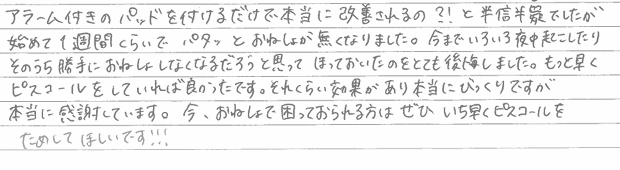 アラーム付きのパッドを付けるだけで本当に改善されるの?!と半信半疑でしたが
始めて1週間くらいでパタッとおねしょが無くなりました。今までいろいろ夜中起こしたり
そのうち勝手におねしょしなくなるだろうと思ってほっておいたのをとても後悔しました。もっと早く
ピスコールをしていれば良かったです。それくらい効果があり本当にびっくりですが
本当に感謝しています。今、おねしょで困っておられる方はぜひいち早くピスコールを
ためしてほしいです!!!